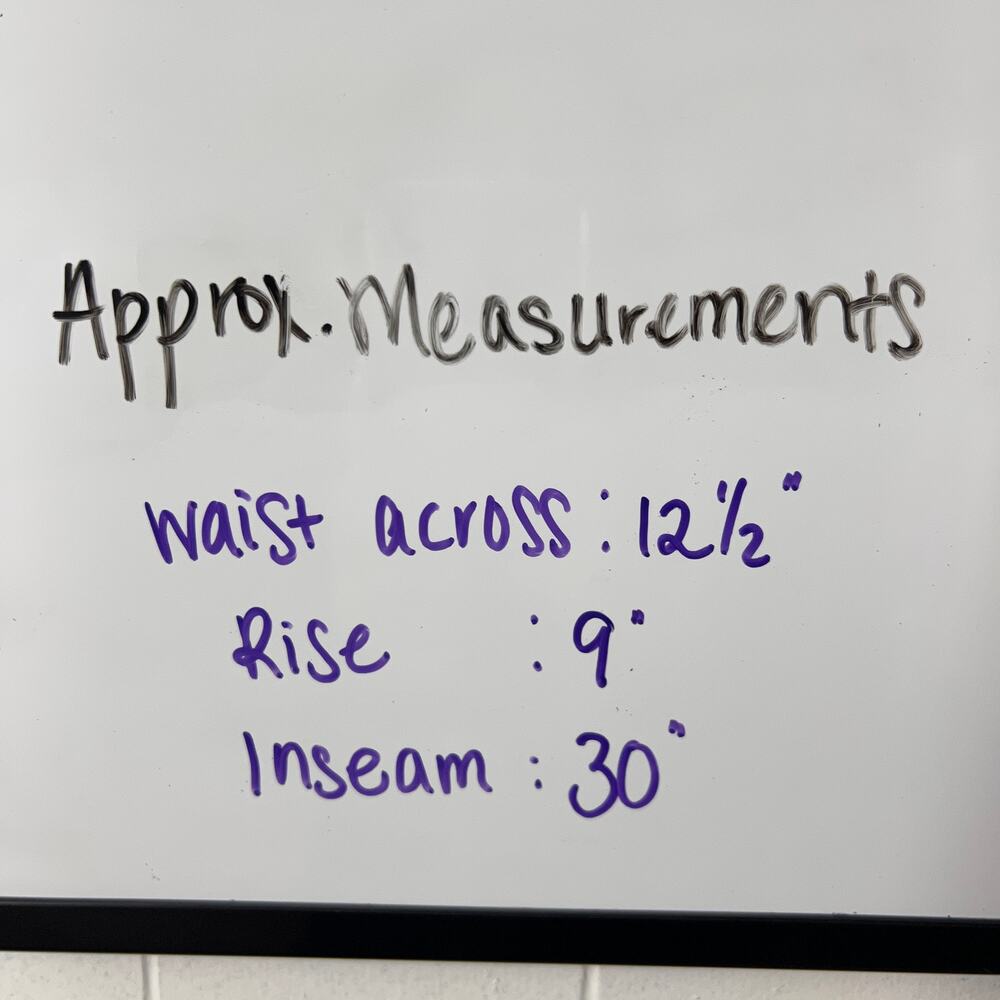 Approx. Measurements
waist across: 12 1/2"
Rise : 9"
Inseam : 30"